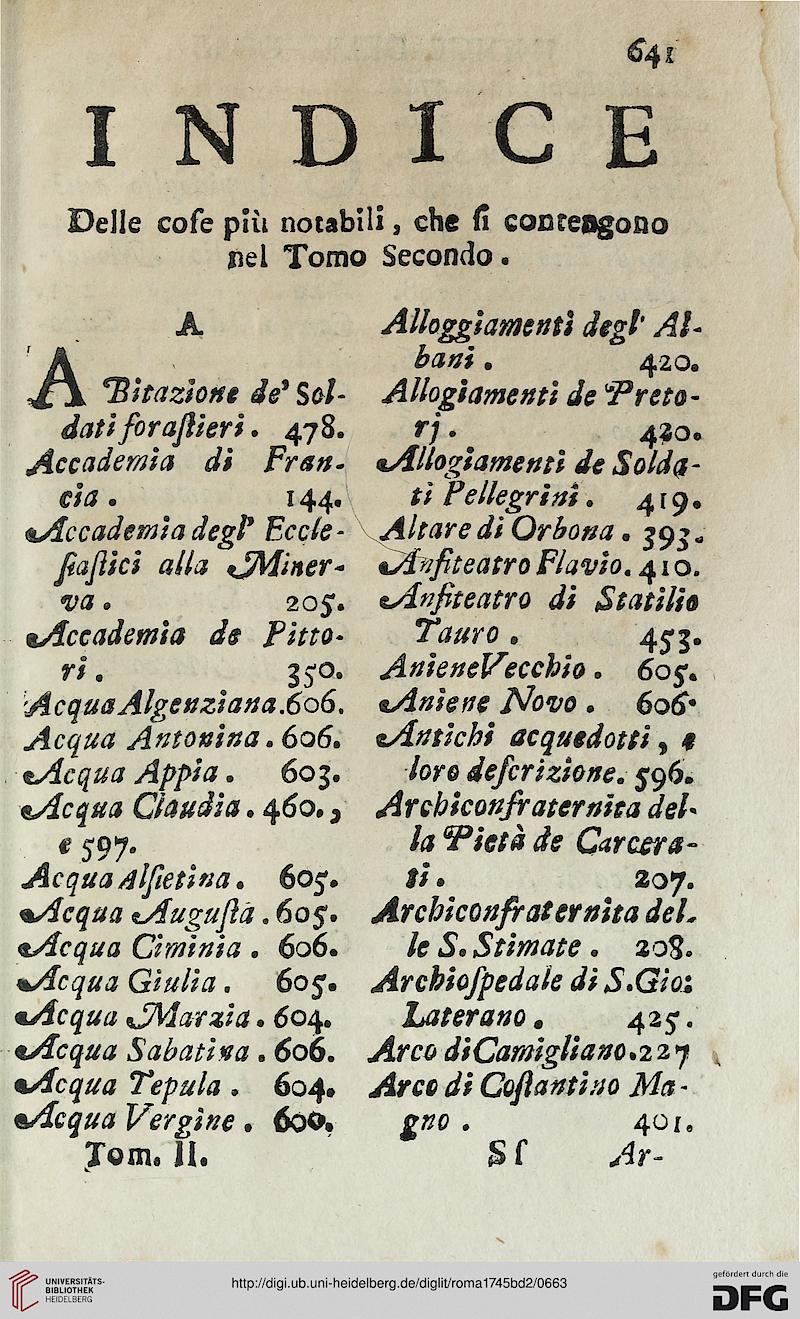 641
INDICE
Delle coſe più notabili, che ſi contengono
nel Tomo Secondo.
A
ABitazione de' Sol-
dati foraſtieri. 478.
Accademia di Fran-
cia. 144.
Accademia degl' Eccle-
ſiaſtici alla Miner-
va. 205.
Accademia de Pitto-
ri. 350.
Acqua Algenziana. 606.
Acqua Antonina. 606.
Acqua Appia. 603.
Acqua Claudia. 460.,
e 597.
Acqua Alſietina. 605.
Acqua Auguſta. 605.
Acqua Ciminia. 606.
Acqua Giulia. 605.
Acqua Marzia. 604.
Acqua Sabatina. 606.
Acqua Tepula. 604.
Acqua Vergine. 600.
Tom. II.
Alloggiamenti degl' Al-
bani. 420.
Allogiamenti de Preto-
rj. 420.
Allogiamenti de Solda-
ti Pellegrini. 419.
Altare di Orbona. 393.
Anfiteatro Flavio. 410.
Anfiteatro di Statilio
Tauro. 453.
Aniene Vecchio. 605.
Aniene Novo. 606.
Antichi acquedotti, e
loro deſcrizione. 596.
Archiconfraternita del-
la Pietà de Carcera-
ti. 207.
Archiconfraternita del-
le S. Stimate. 208.
Archioſpedale di S. Gio:
Laterano. 425.
Arco di Camigliano. 227
Arco di Coſtantino Ma-
gno. 401.
S ſ Ar-
UNIVERSITÄTS-
BIBLIOTHEK
HEIDELBERG
http://digi.ub.uni-heidelberg.de/diglit/roma1745bd2/0663
gefördert durch die
DFG